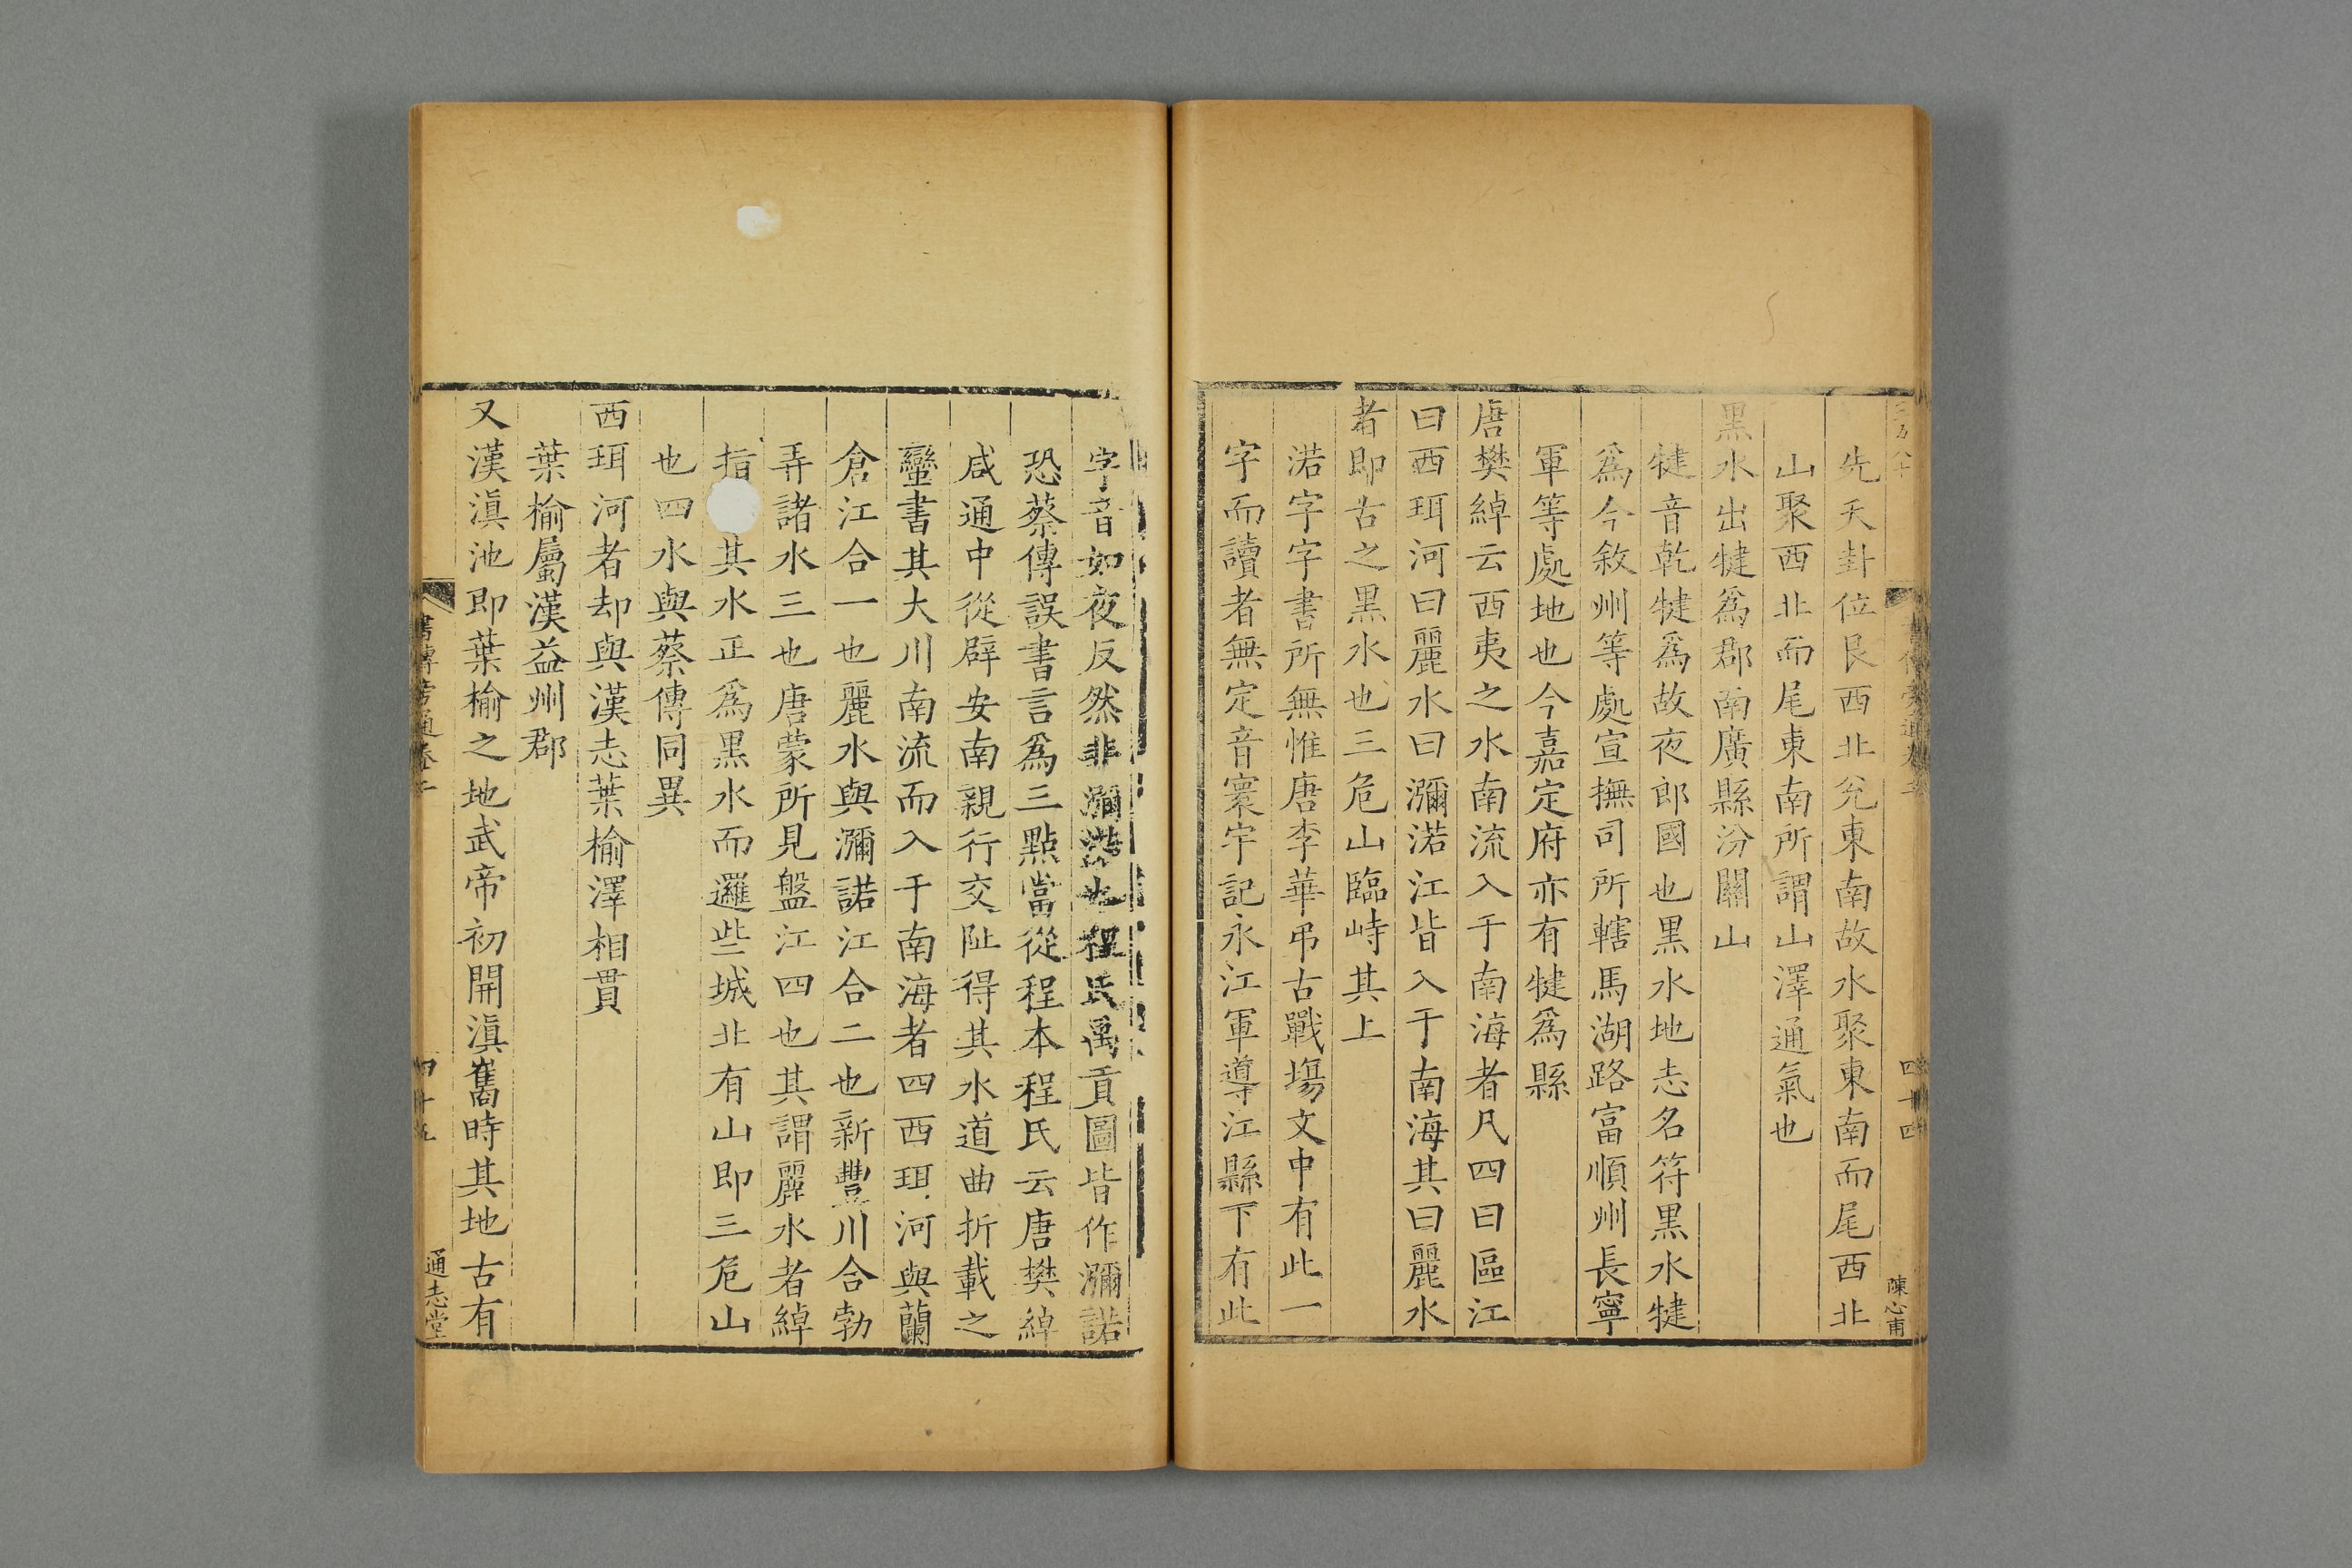 先天卦位艮西北兊東南故水聚東南而尾西北
山聚西北而尾東南所謂山澤通氣也
黑水出犍爲郡南廣縣汾關山
犍音乾犍爲故夜郎國也黑水地志名符黑水犍
爲今敘州等處宣撫司所轄馬湖路富順州長寧
軍等處地也今嘉定府亦有犍爲縣
唐樊綽云西夷之水南流入于南海者凡四曰區江
曰西珥河曰麗水曰瀰渃江皆入于南海其曰麗水
者即古之黑水也三危山臨峙其上
渃字字書所無惟唐李華弔古戰塲文中有此一
字而讀者無定音寰宇記永江軍導江縣下有此
四十四
陳心甫
字音如夜反然非瀰渃也程氏禹貢圖皆作瀰諾
恐蔡傳誤書言爲三點當從程本程氏云唐樊綽
咸通中從辟安南親行交阯得其水道曲折載之
蠻書其大川南流而入于南海者四西珥河與蘭
倉江合一也麗水與瀰諾江合二也新豐川合勃
弄諸水三也唐蒙所見盤江四也其謂麗水者綽
指其水正爲黑水而邏些城北有山即三危山
也四水與蔡傳同異
西珥河者却與漢志葉榆澤相貫
葉榆屬漢益州郡
又漢滇池即葉榆之地武帝初開滇嶲時其地古有
書傳㫄通卷二
四十五
通志堂